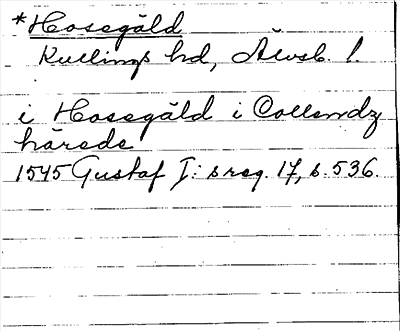 *Hossgäld
Kullings hd, Älvsb. l.
i Hossgäld i Collendz
härede
1545 Gustaf I: s reg. 17, s. 536.